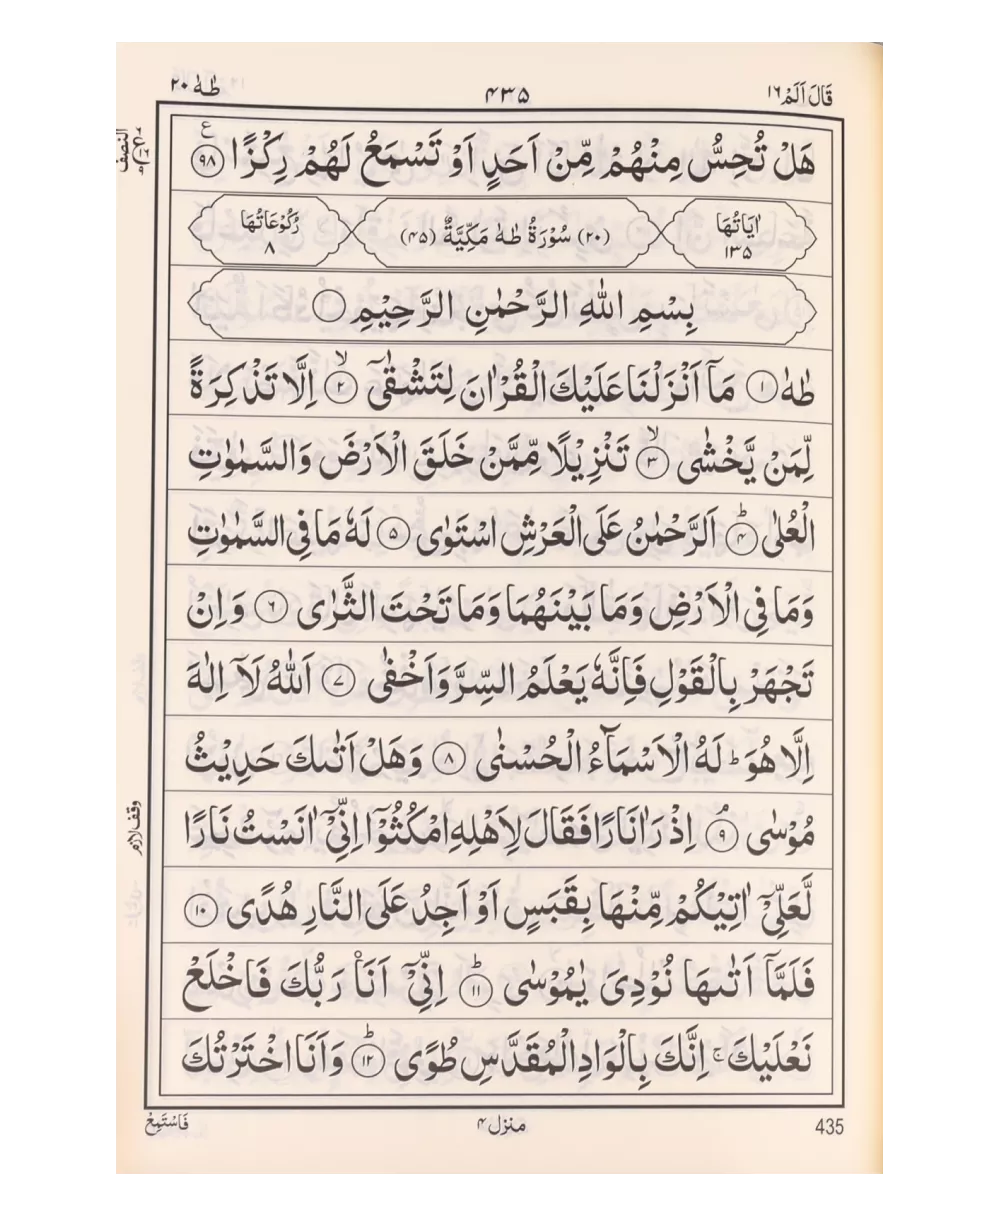 قَالَ اَلَمْ ١٦ ۴۳۵ طٰهٰ ٢٠
هَلْ تُحِسُّ مِنْهُمْ مِّنْ اَحَدٍ اَوْ تَسْمَعُ لَهُمْ رِكْزًا ۹۸ ع
النصف
اٰيَاتُهَا ١٣٥ (٢٠) سُوْرَةُ طٰهٰ مَكِّيَّةٌ (۴۵) رُكُوْعَاتُهَا ٨
بِسْمِ اللّٰهِ الرَّحْمٰنِ الرَّحِيْمِ
طٰهٰ ١ مَاۤ اَنْزَلْنَا عَلَيْكَ الْقُرْاٰنَ لِتَشْقٰۤى ۙ ٢ اِلَّا تَذْكِرَةً
لِّمَنْ يَّخْشٰى ۙ ٣ تَنْزِيْلًا مِّمَّنْ خَلَقَ الْاَرْضَ وَالسَّمٰوٰتِ
الْعُلٰى ؕ ۴ اَلرَّحْمٰنُ عَلَى الْعَرْشِ اسْتَوٰى ۵ لَهٗ مَا فِى السَّمٰوٰتِ
وَمَا فِى الْاَرْضِ وَمَا بَيْنَهُمَا وَمَا تَحْتَ الثَّرٰى ۶ وَاِنْ
تَجْهَرْ بِالْقَوْلِ فَاِنَّهٗ يَعْلَمُ السِّرَّ وَاَخْفٰى ٧ اَللّٰهُ لَاۤ اِلٰهَ
اِلَّا هُوَ ؕ لَهُ الْاَسْمَآءُ الْحُسْنٰى ٨ وَهَلْ اَتٰىكَ حَدِيْثُ
مُوْسٰى ۘ ٩ اِذْ رَاٰ نَارًا فَقَالَ لِاَهْلِهِ امْكُثُوْۤا اِنِّىْۤ اٰنَسْتُ نَارًا
وقف لازم
لَّعَلِّىْۤ اٰتِيْكُمْ مِّنْهَا بِقَبَسٍ اَوْ اَجِدُ عَلَى النَّارِ هُدًى ١٠
فَلَمَّاۤ اَتٰىهَا نُوْدِىَ يٰمُوْسٰى ؕ ١١ اِنِّىْۤ اَنَا۠ رَبُّكَ فَاخْلَعْ
نَعْلَيْكَ ۚ اِنَّكَ بِالْوَادِ الْمُقَدَّسِ طُوًى ؕ ١٢ وَاَنَا اخْتَرْتُكَ
435 منزل ۴ فَاسْتَمِعْ